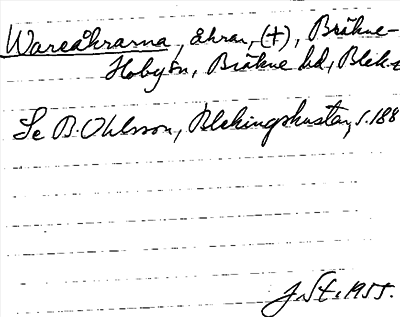 Wareåkrarna, åkrar, (+), Bräkne-
Hoby sn, Bräkne hd, Blek.
Se B. Ohlsson, Blekingskusten, s. 188
J. St. 1955.